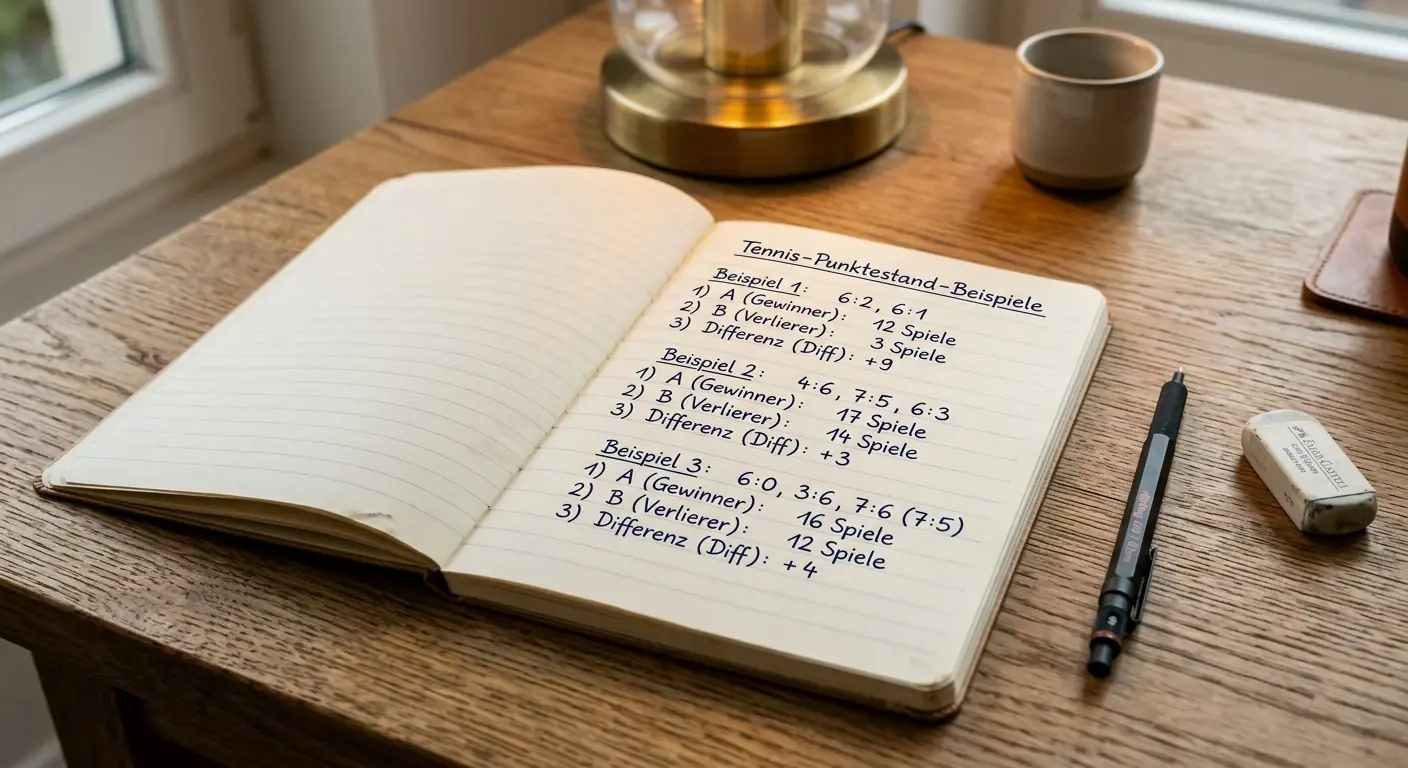 Tennis-Punktestand-Beispiele
Beispiel 1: 6:2, 6:1
1) A (Gewinner): 12 Spiele
2) B (Verlierer): 3 Spiele
3) Differenz (Diff): +9
Beispiel 2: 4:6, 7:5, 6:3
1) A (Gewinner): 17 Spiele
2) B (Verlierer): 14 Spiele
3) Differenz (Diff): +3
Beispiel 3: 6:0, 3:6, 7:6 (7:5)
1) A (Gewinner): 16 Spiele
2) B (Verlierer): 12 Spiele
3) Differenz (Diff): +4